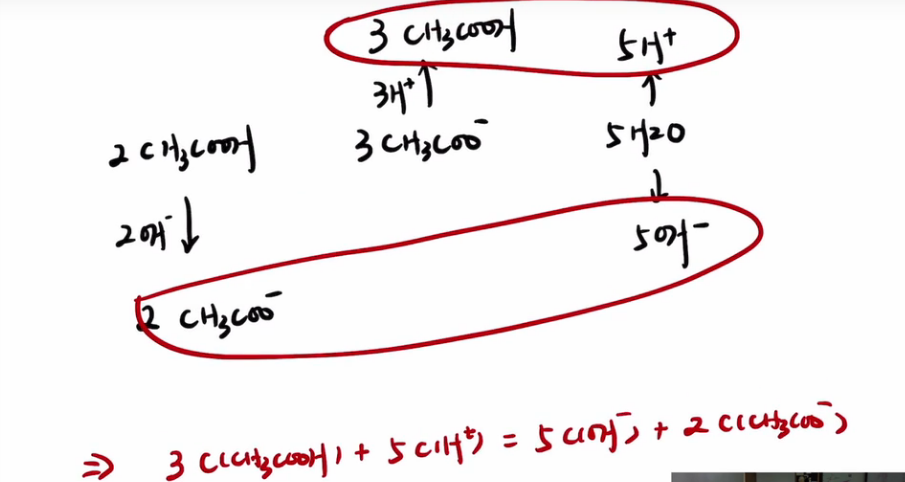 3 CH₃COOH 5H⁺
3H⁺↑ ↑
2 CH₃COOH 3 CH₃COO⁻ 5H2O
2OH⁻↓ ↓
5OH⁻
2 CH₃COO⁻
⇒ 3 C(CH₃COOH) + 5 C(H⁺) = 5 C(OH⁻) + 2 C(CH₃COO⁻)